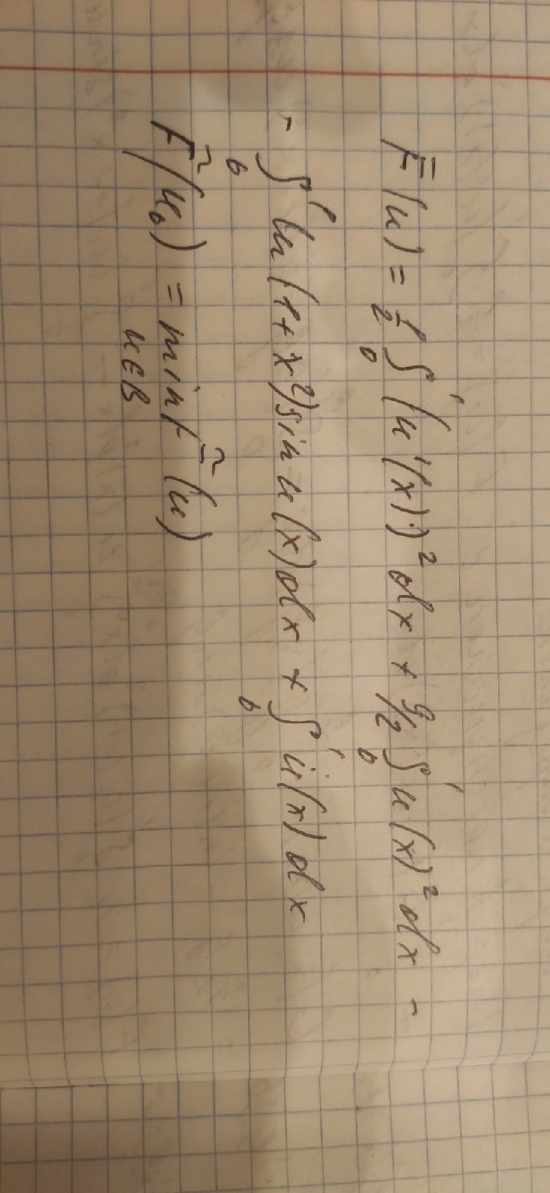 F̃(u) = 1/2 ∫₀¹ (u'(x))² dx + 9/2 ∫₀¹ u(x)² dx −
− ∫₀¹ ln(1+x²) sin u(x) dx + ∫₀¹ u(x) dx
F̃(u₀) = min F̃(u)
u∈B